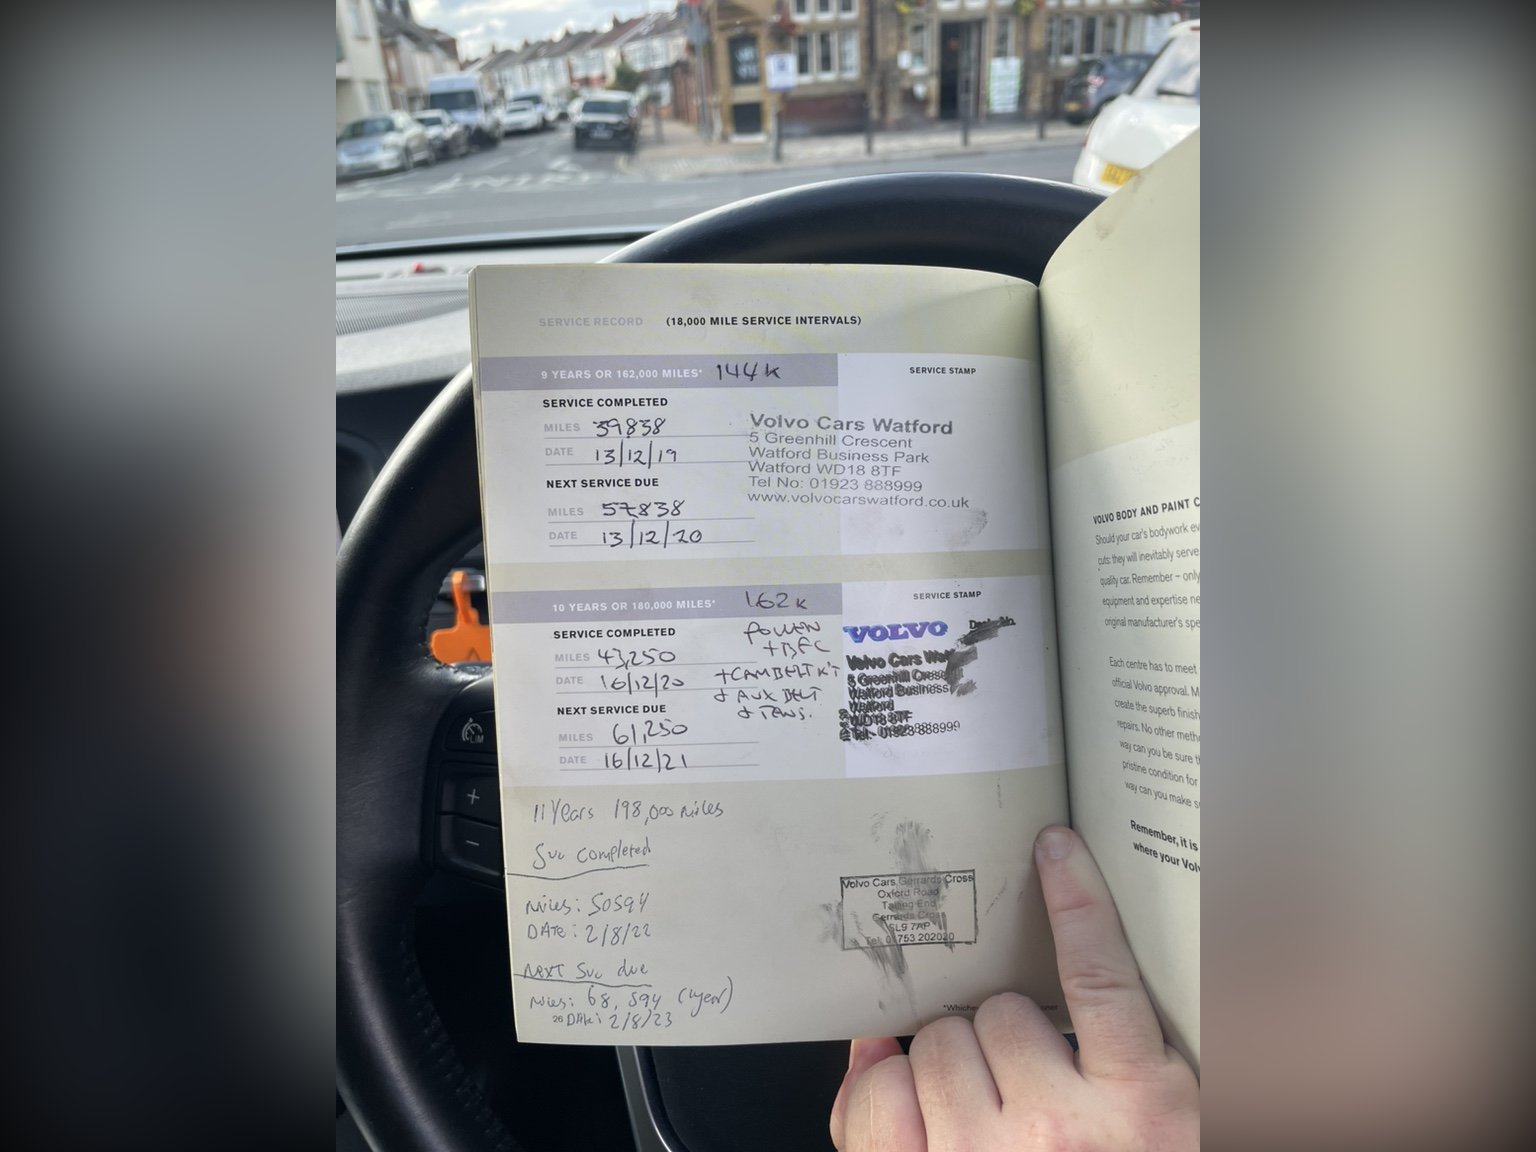 SERVICE RECORD (18,000 MILE SERVICE INTERVALS)
9 YEARS OR 162,000 MILES* 144k
SERVICE STAMP
SERVICE COMPLETED
MILES 39838
DATE 13/12/19
NEXT SERVICE DUE
MILES 57838
DATE 13/12/20
Volvo Cars Watford
5 Greenhill Crescent
Watford Business Park
Watford WD18 8TF
Tel No: 01923 888999
www.volvocarswatford.co.uk
10 YEARS OR 180,000 MILES* 162k
SERVICE STAMP
SERVICE COMPLETED
MILES 43,250
DATE 16/12/20
NEXT SERVICE DUE
MILES 61,250
DATE 16/12/21
POLLEN
+ BFC
+ CAMBELT KIT
& AUX BELT
& TENS.
VOLVO
Dealer No.
Volvo Cars Wat
5 Greenhill Cresc
Watford Business
Watford
WD18 8TF
Tel:- 01923 888999
11 Years 198,000 miles
Svc completed
Miles: 50594
DATE: 2/8/22
NEXT Svc due
Miles: 68,594 (1year)
DATE: 2/8/23
26
Volvo Cars Gerrards Cross
Oxford Road
Tatling End
Gerrards Cross
SL9 7AP
Tel: 01753 202020
*Whiche
oner
VOLVO BODY AND PAINT C
Should your car's bodywork ev
cuts: they will inevitably serve
quality car. Remember – only
equipment and expertise ne
original manufacturer's spe
Each centre has to meet
official Volvo approval. M
create the superb finish
repairs. No other meth
way can you be sure t
pristine condition for
way can you make s
Remember, it is
where your Volv
LIM
+
−